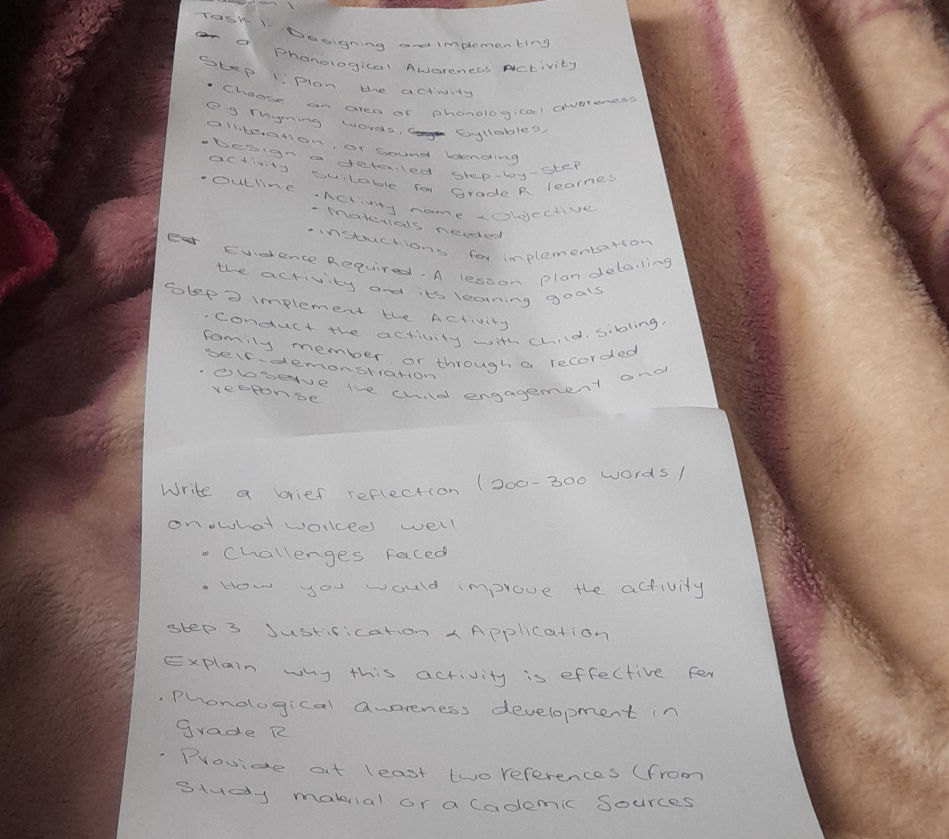 Task 1.
Designing and Implementing
a Phonological Awareness Activity
Step 1: Plan the activity
• Choose an area of phonological awareness
e.g Rhyming words, Syllables,
alliteration, or sound blending
• Design a detailed step-by-step
activity suitable for Grade R learnes
• Outline
• Activity name & Objective
• Materials needed
• instuctions for implementation
Evidence Required - A lesson plan detailing
the activity and its learning goals
Step 2 Implement the Activity
• Conduct the activity with child, sibling,
family member, or through a recorded
self-demonstration
• Observe the child engagement and
response
Write a brief reflection (200-300 words)
on • what worked well
• Challenges faced
• How you would improve the activity
Step 3 Justification & Application
Explain why this activity is effective for
• Phonological awareness development in
grade R
• Provide at least two references (from
Study material or academic Sources